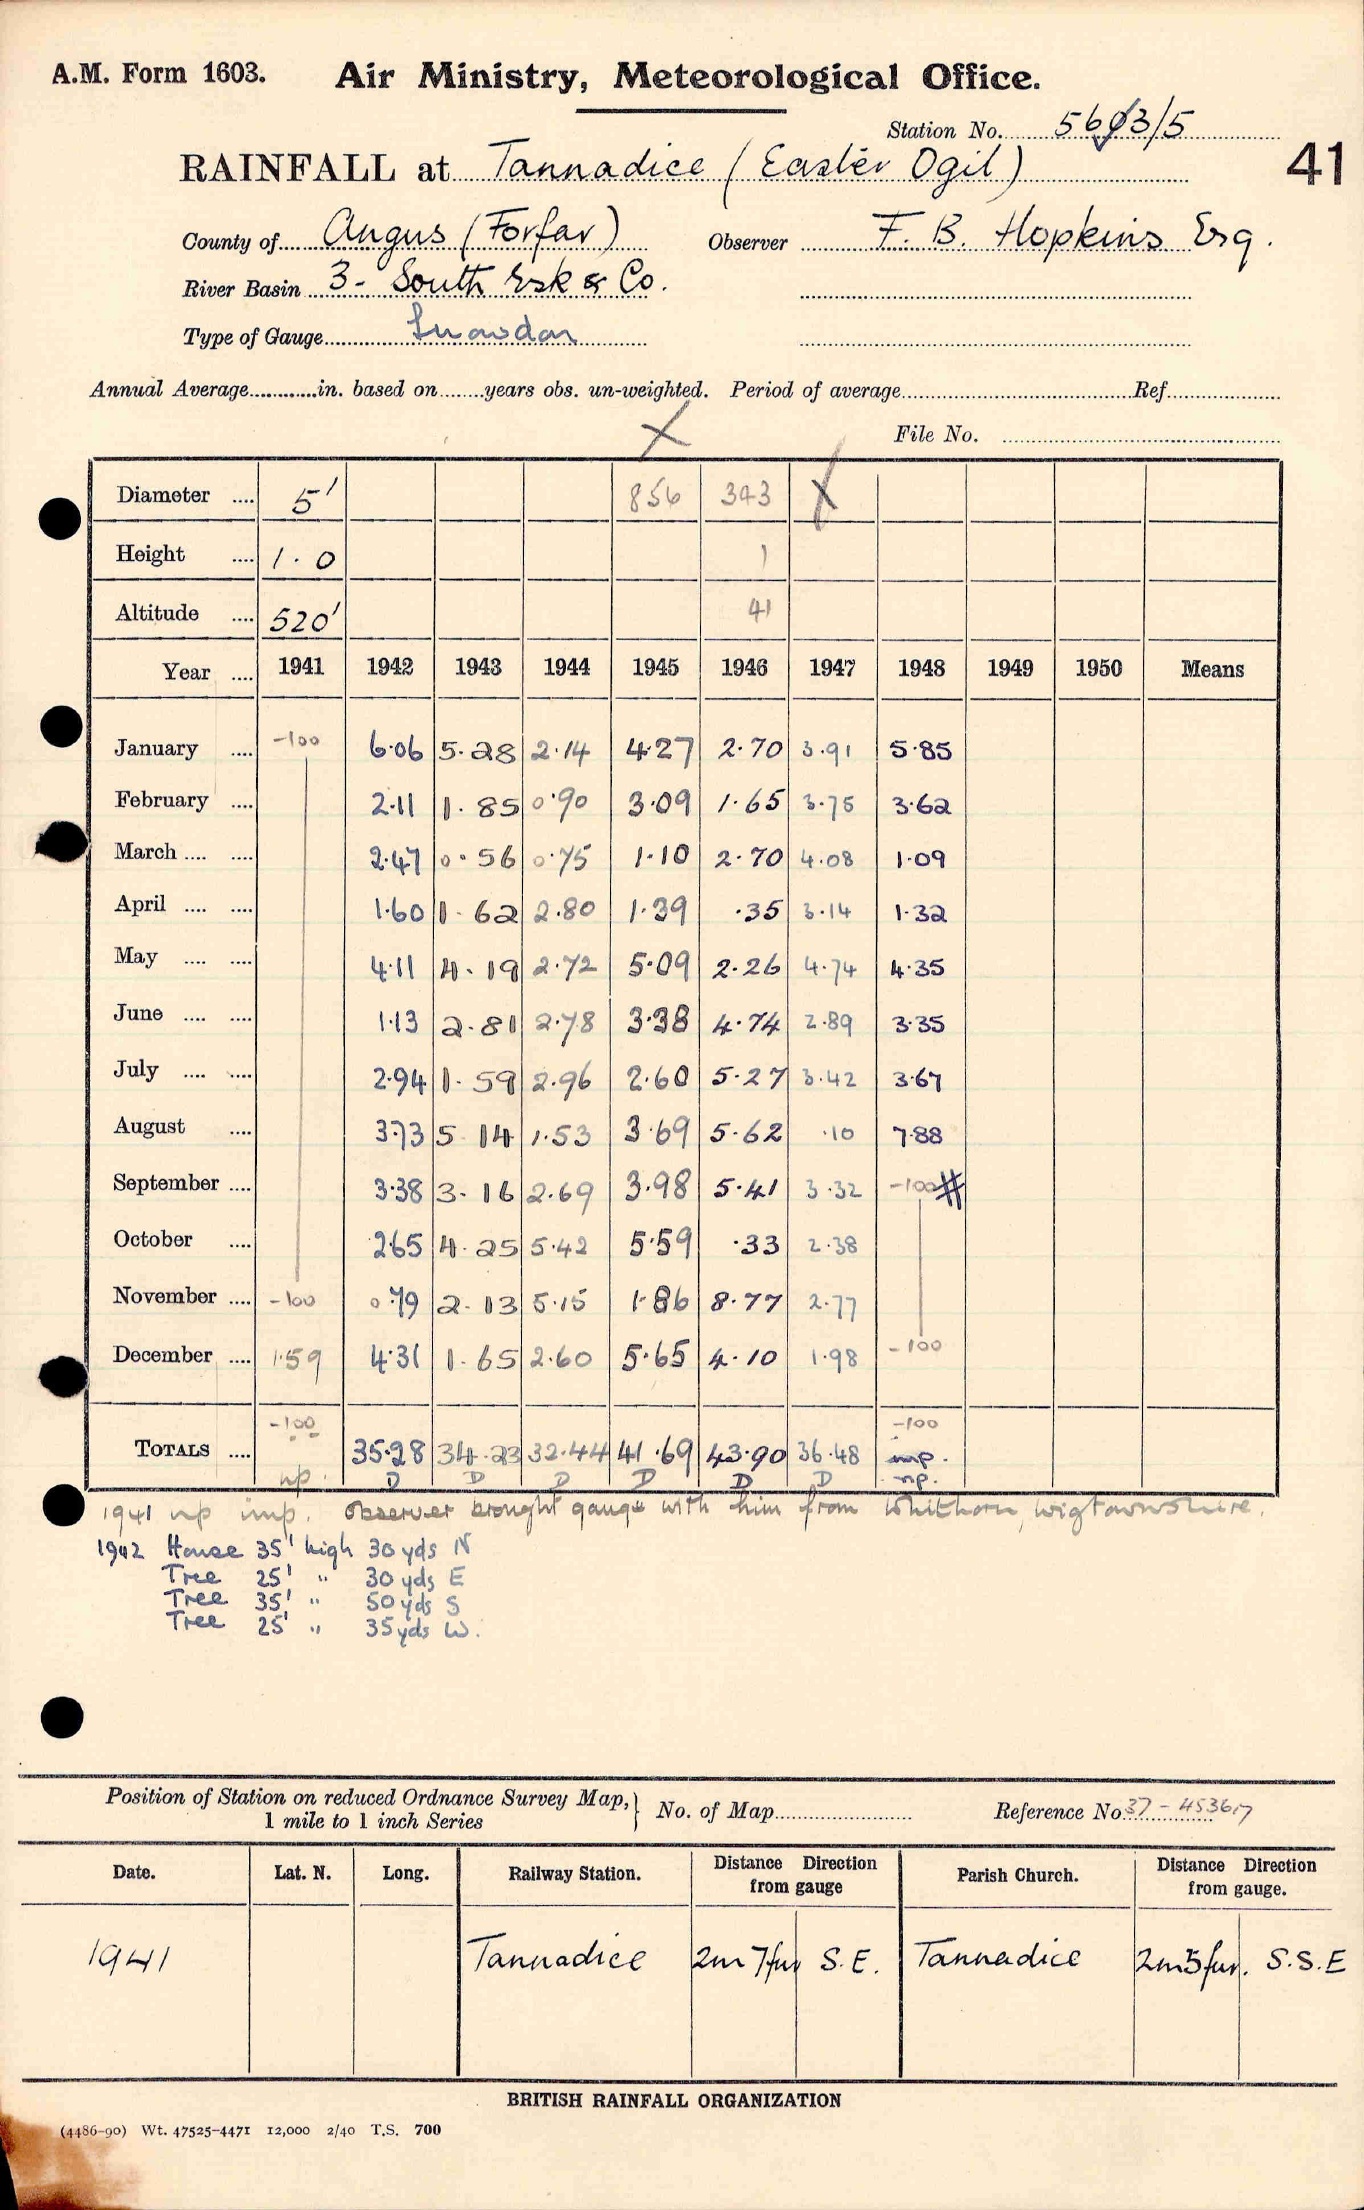 A.M. Form 1603. Air Ministry, Meteorological Office.
Station No. 5603/5
41
RAINFALL at Tannadice (Easter Ogil)
County of Angus (Forfar) Observer F. B. Hopkins Esq.
River Basin 3- South Esk & Co.
Type of Gauge Snowdon
Annual Average in. based on years obs. un-weighted. Period of average Ref.
X File No.
Diameter 5' 856 343 X
Height 1.0 1
Altitude 520' 41
Year 1941 1942 1943 1944 1945 1946 1947 1948 1949 1950 Means
January -100 6.06 5.28 2.14 4.27 2.70 3.91 5.85
February 2.11 1.85 0.90 3.09 1.65 3.75 3.62
March 2.47 0.56 0.75 1.10 2.70 4.08 1.09
April 1.60 1.62 2.80 1.39 .35 3.14 1.32
May 4.11 4.19 2.72 5.09 2.26 4.74 4.35
June 1.13 2.81 2.78 3.38 4.74 2.89 3.35
July 2.94 1.59 2.96 2.60 5.27 3.42 3.67
August 3.73 5.14 1.53 3.69 5.62 .10 7.88
September 3.38 3.16 2.69 3.98 5.41 3.32 -100 #
October 2.65 4.25 5.42 5.59 .33 2.38
November -100 0.79 2.13 5.15 1.86 8.77 2.77
December 1.59 4.31 1.65 2.60 5.65 4.10 1.98 -100
-100 -100
TOTALS 35.28 34.23 32.44 41.69 43.90 36.48 imp.
np. D D D D D D np.
1941 np imp. Observer brought gauge with him from Whithorn, Wigtownshire.
1942 House 35' high 30 yds N
Tree 25' " 30 yds E
Tree 35' " 50 yds S
Tree 25' " 35 yds W.
Position of Station on reduced Ordnance Survey Map, 1 mile to 1 inch Series } No. of Map Reference No. 37-453617
Date. Lat. N. Long. Railway Station. Distance Direction from gauge Parish Church. Distance Direction from gauge.
1941 Tannadice 2m 7fur S.E. Tannadice 2m 5fur. S.S.E
BRITISH RAINFALL ORGANIZATION
(4486-90) Wt. 47525-4471 12,000 2/40 T.S. 700